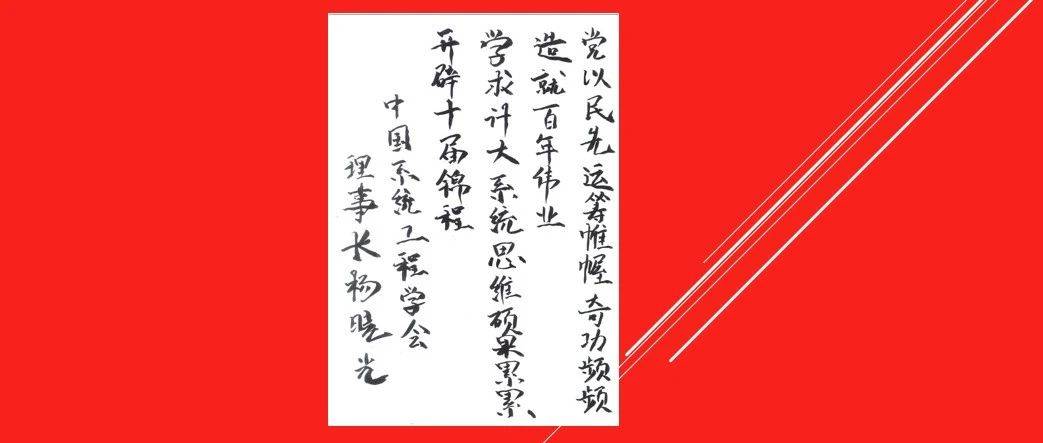 党以民先运筹帷幄奇功频频
造就百年伟业
学求计大系统思维硕果累累
开辟十届锦程
中国系统工程学会
理事长杨晓光